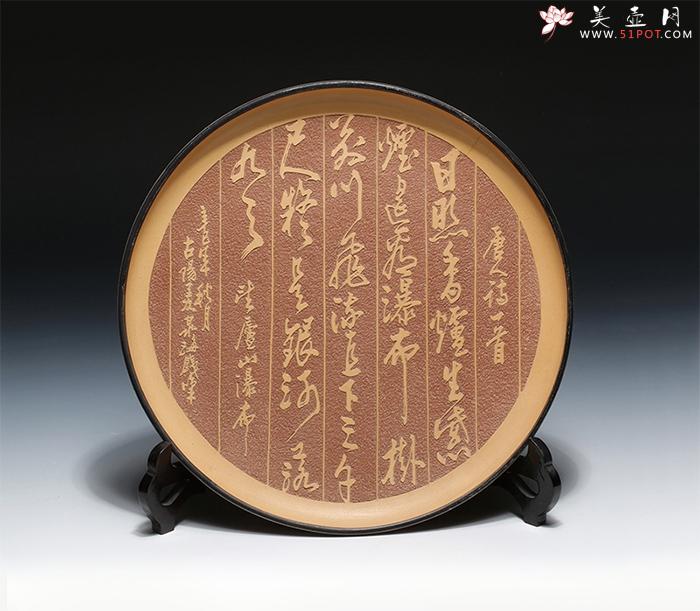 美壶网
WWW.51POT.COM
唐人诗一首
日照香爐生紫
煙遥看瀑布掛
前川飛流直下三千
尺疑是銀河落
九天 望廬山瀑布
辛巳年秋月
古陽羡